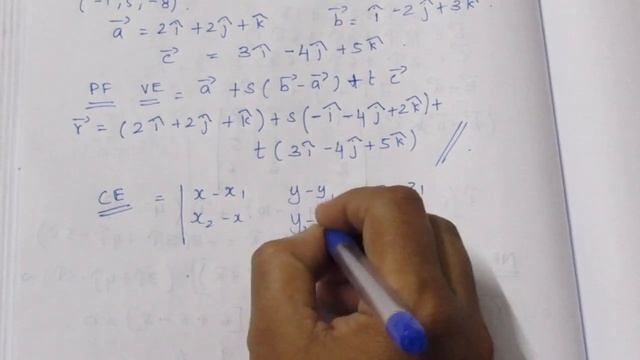 (-1, 5, -8).
a⃗ = 2î + 2ĵ + k̂    b⃗ = î - 2ĵ + 3k̂.
c⃗ = 3î - 4ĵ + 5k̂.
PF VE = a⃗ + s(b⃗ - a⃗) + t c⃗
r⃗ = (2î + 2ĵ + k̂) + s(-î - 4ĵ + 2k̂) +
t(3î - 4ĵ + 5k̂) //.
CE = | x - x₁    y - y₁
x₂ - x    y